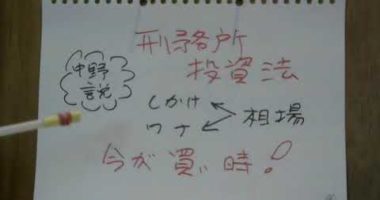 刑務所
投資法
中野
説
しかけ
ワナ
相場
今が買い時!